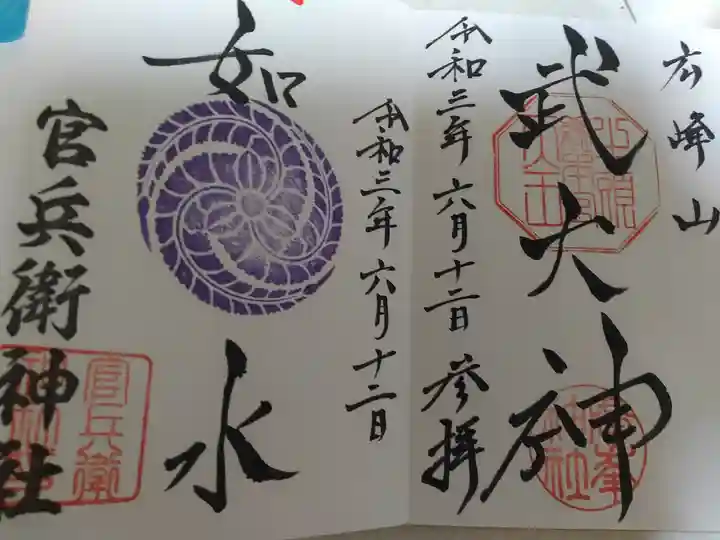 広峰山
武大神
令和三年六月十二日参拝
令和三年六月十二日
如水
官兵衛神社
官兵衛